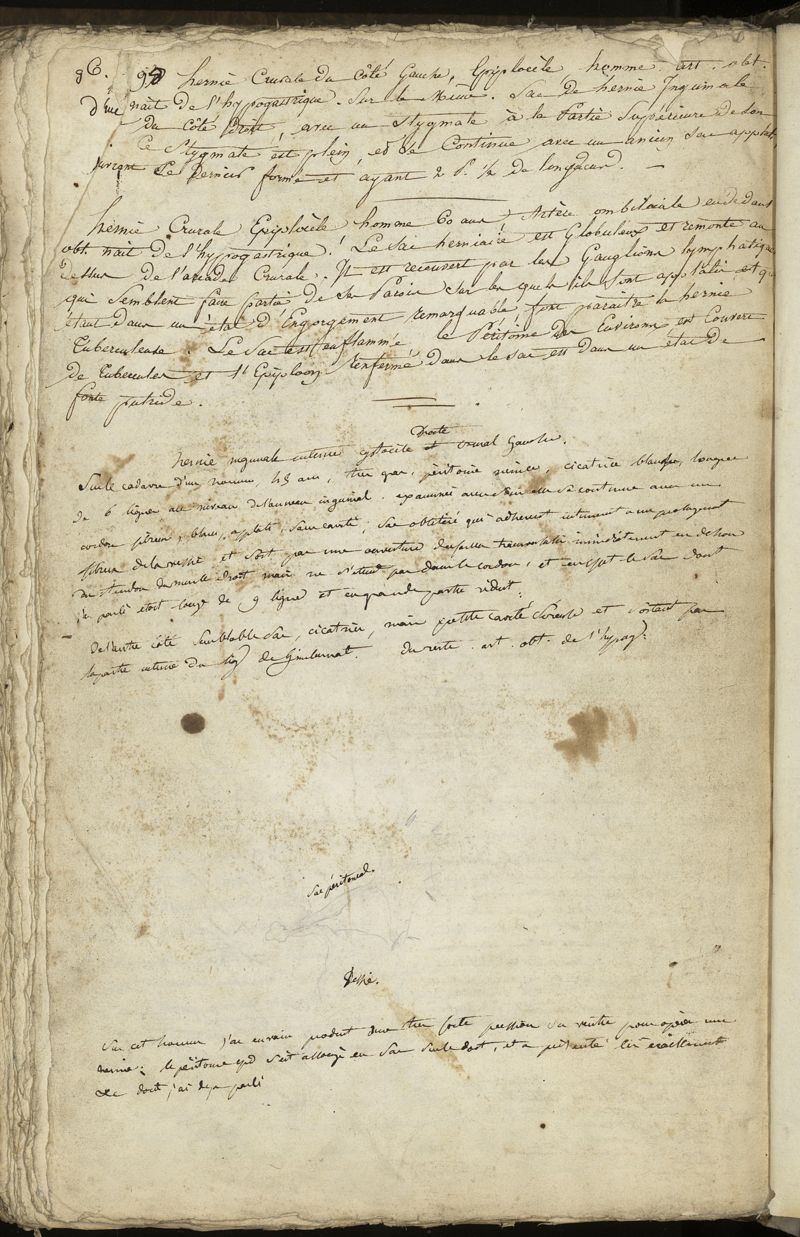 96. 95 hernie Crurale du Côté Gauche, Epiplocèle homme art. obt.
nait de l'hypogastrique. Sur le Même. Sac de hernie Inguinale
d'une du Côté Droit, avec un Stygmate à la Partie Supérieure de son
Ce Stygmate est plein, et se Continue avec un ancien Sac applati,
Le Dernier formé et ayant 2 P. 1/2 de longueur.
hernie Crurale Epiplocèle homme 60 ans Artère ombilicale en dedans
obt. nait de l'hypogastrique. Le Sac herniaire est Globuleux et remonte au
dessus de l'arcade Crurale. Il est recouvert par les Ganglions lymphatiques
qui Semblent faire partie de Sa Paroi Sur lesquels ils Sont applatis et qui
étant dans un état d'Engorgement remarquable font paraitre la hernie
Tuberculeuse. Le Sac est enflammé le Péritoine des Environs est Couvert
de Tubercules et l'Epiploon Renfermé dans le Sac est dans un état de
fonte putride.
Droite
hernie inguinale interne cystocèle et crural Gauche.
Sur le cadavre d'un homme, 45 ans, très gras, péritoine mince, cicatrice blanche, longue
de 6 lignes au niveau de l'anneau inguinal. examinée avec soin elle se continue avec un
cordon fibreux, blanc, applati, sans cavité, Sac oblitéré qui adhérent intimement a un prolongement
fibreux de la vessie et sort par une ouverture du immédiatement en dehors
du tendon du muscle droit mais ne s'étend pas dans le cordon, et en effet le Sac dont
j'ai parlé étoit long de 9 lignes et en grande partie réduit.
De l'autre côté Semblable Sac, cicatrice, mais petite cavité Séreuse et sortant par
la partie interne du lig. de Gimbernat. Du reste. art. obt. de l'hypog.
Sac péritonéal.
Vessie.
Sur cet homme j'ai en vain produit une très forte pression sur ventre pour opérer une
hernie; le péritoine qui s'est allongé en Sac Sur le doit, et a présenté exactement
Le dont j'ai déja parlé